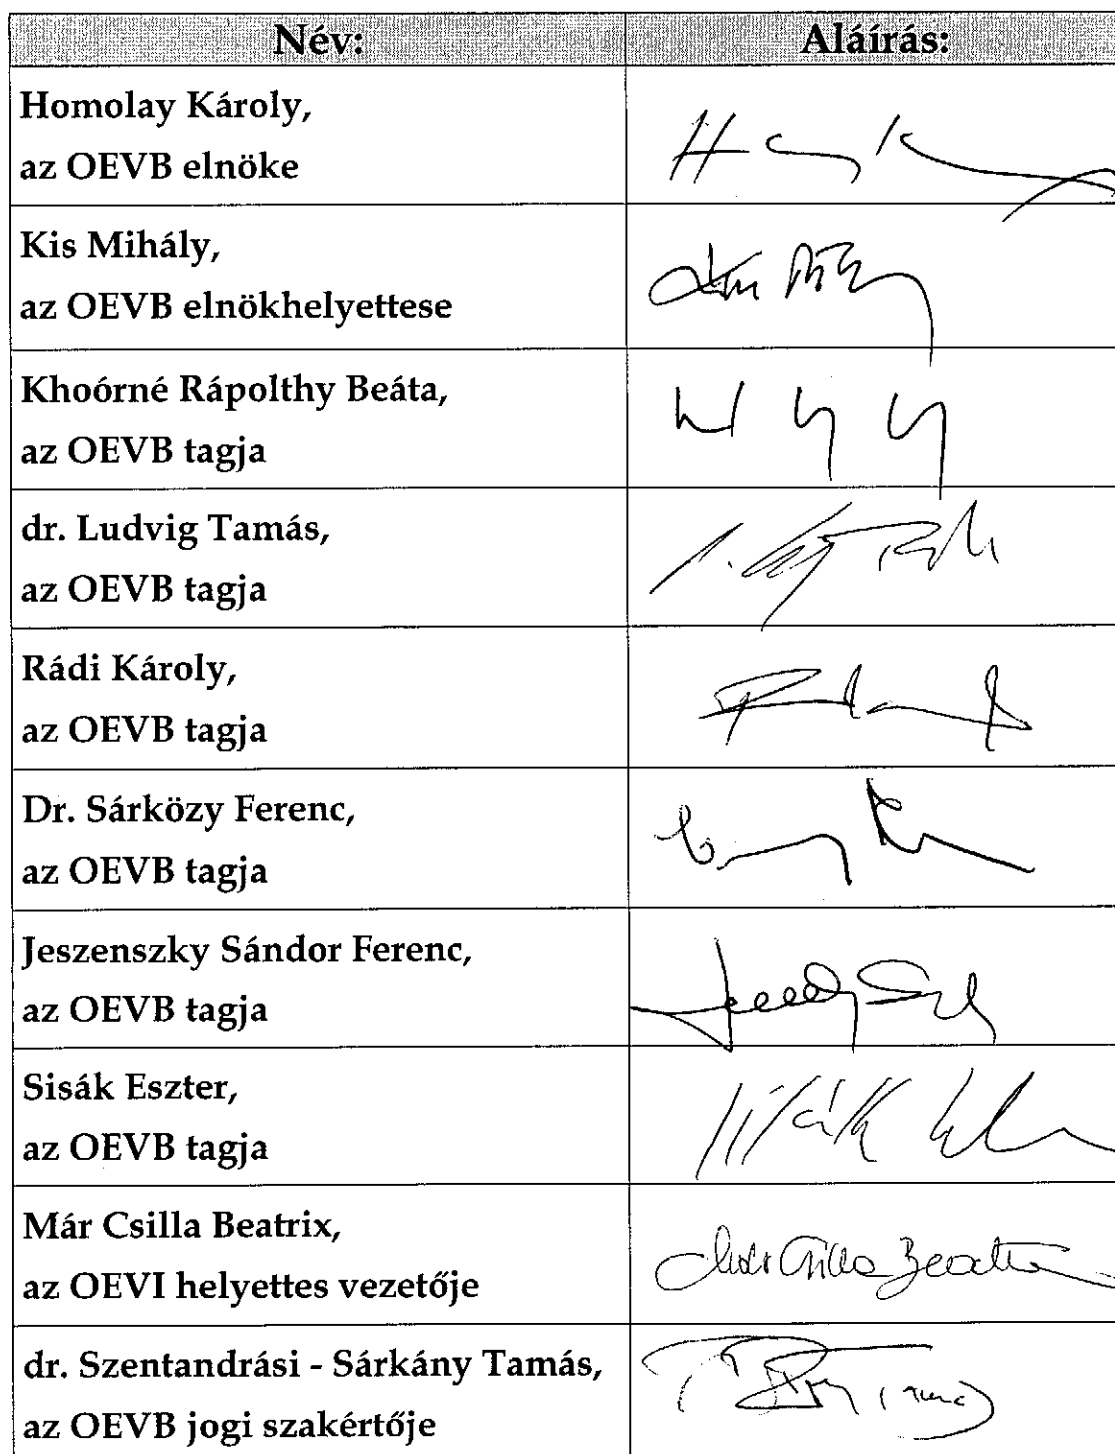 Név: Aláírás:
Homolay Károly,
az OEVB elnöke
Kis Mihály,
az OEVB elnökhelyettese
Khoórné Rápolthy Beáta,
az OEVB tagja
dr. Ludvig Tamás,
az OEVB tagja
Rádi Károly,
az OEVB tagja
Dr. Sárközy Ferenc,
az OEVB tagja
Jeszenszky Sándor Ferenc,
az OEVB tagja
Sisák Eszter,
az OEVB tagja
Már Csilla Beatrix,
az OEVI helyettes vezetője
dr. Szentandrási - Sárkány Tamás,
az OEVB jogi szakértője